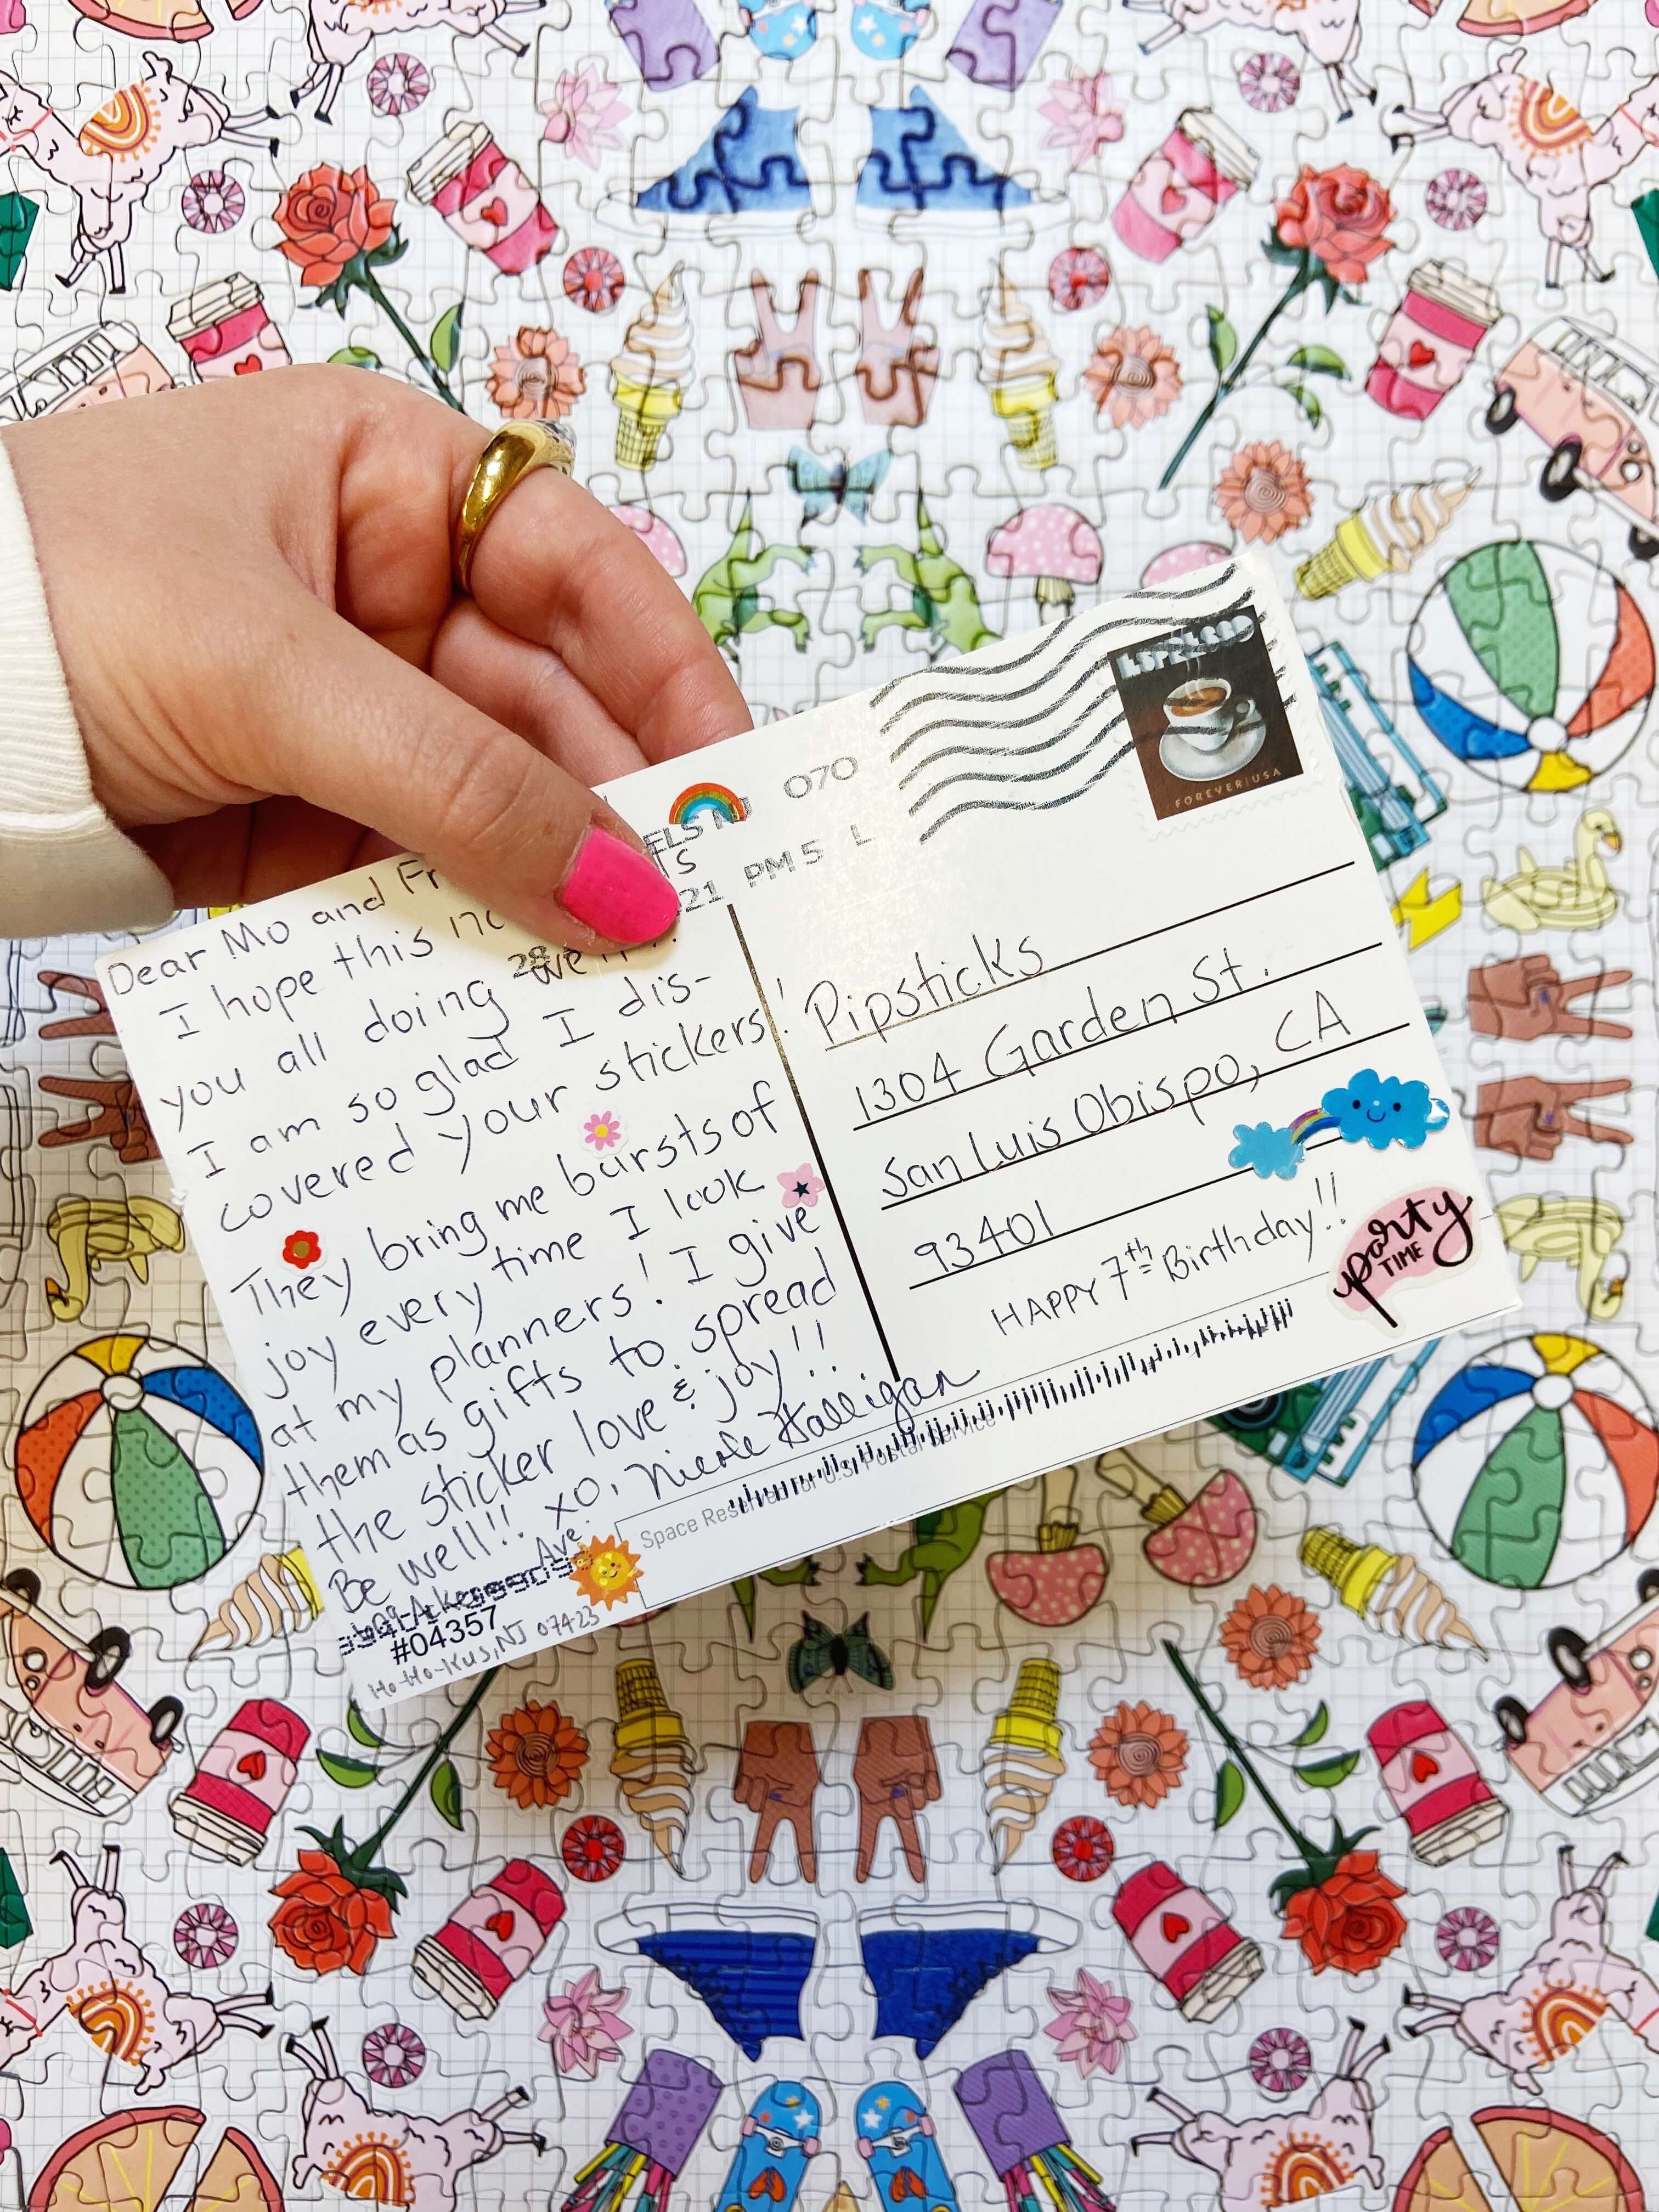 Dear Mo and Fr
I hope this
you all doing
I am so glad I dis-
covered your stickers!
They bring me bursts of
joy every time I look
at my planners! I give
them as gifts to spread
the sticker love & joy!!
Be well!! xo, Nicole Halligan
Ave.
#04357
Ho-Ho-Kus, NJ 07423
070
21 PM 5 L
ESPRESSO
FOREVER/USA
Pipsticks
1304 Garden St.
San Luis Obispo, CA
93401
HAPPY 7th Birthday!!
party
TIME
Space Reserved for U.S. Postal Service